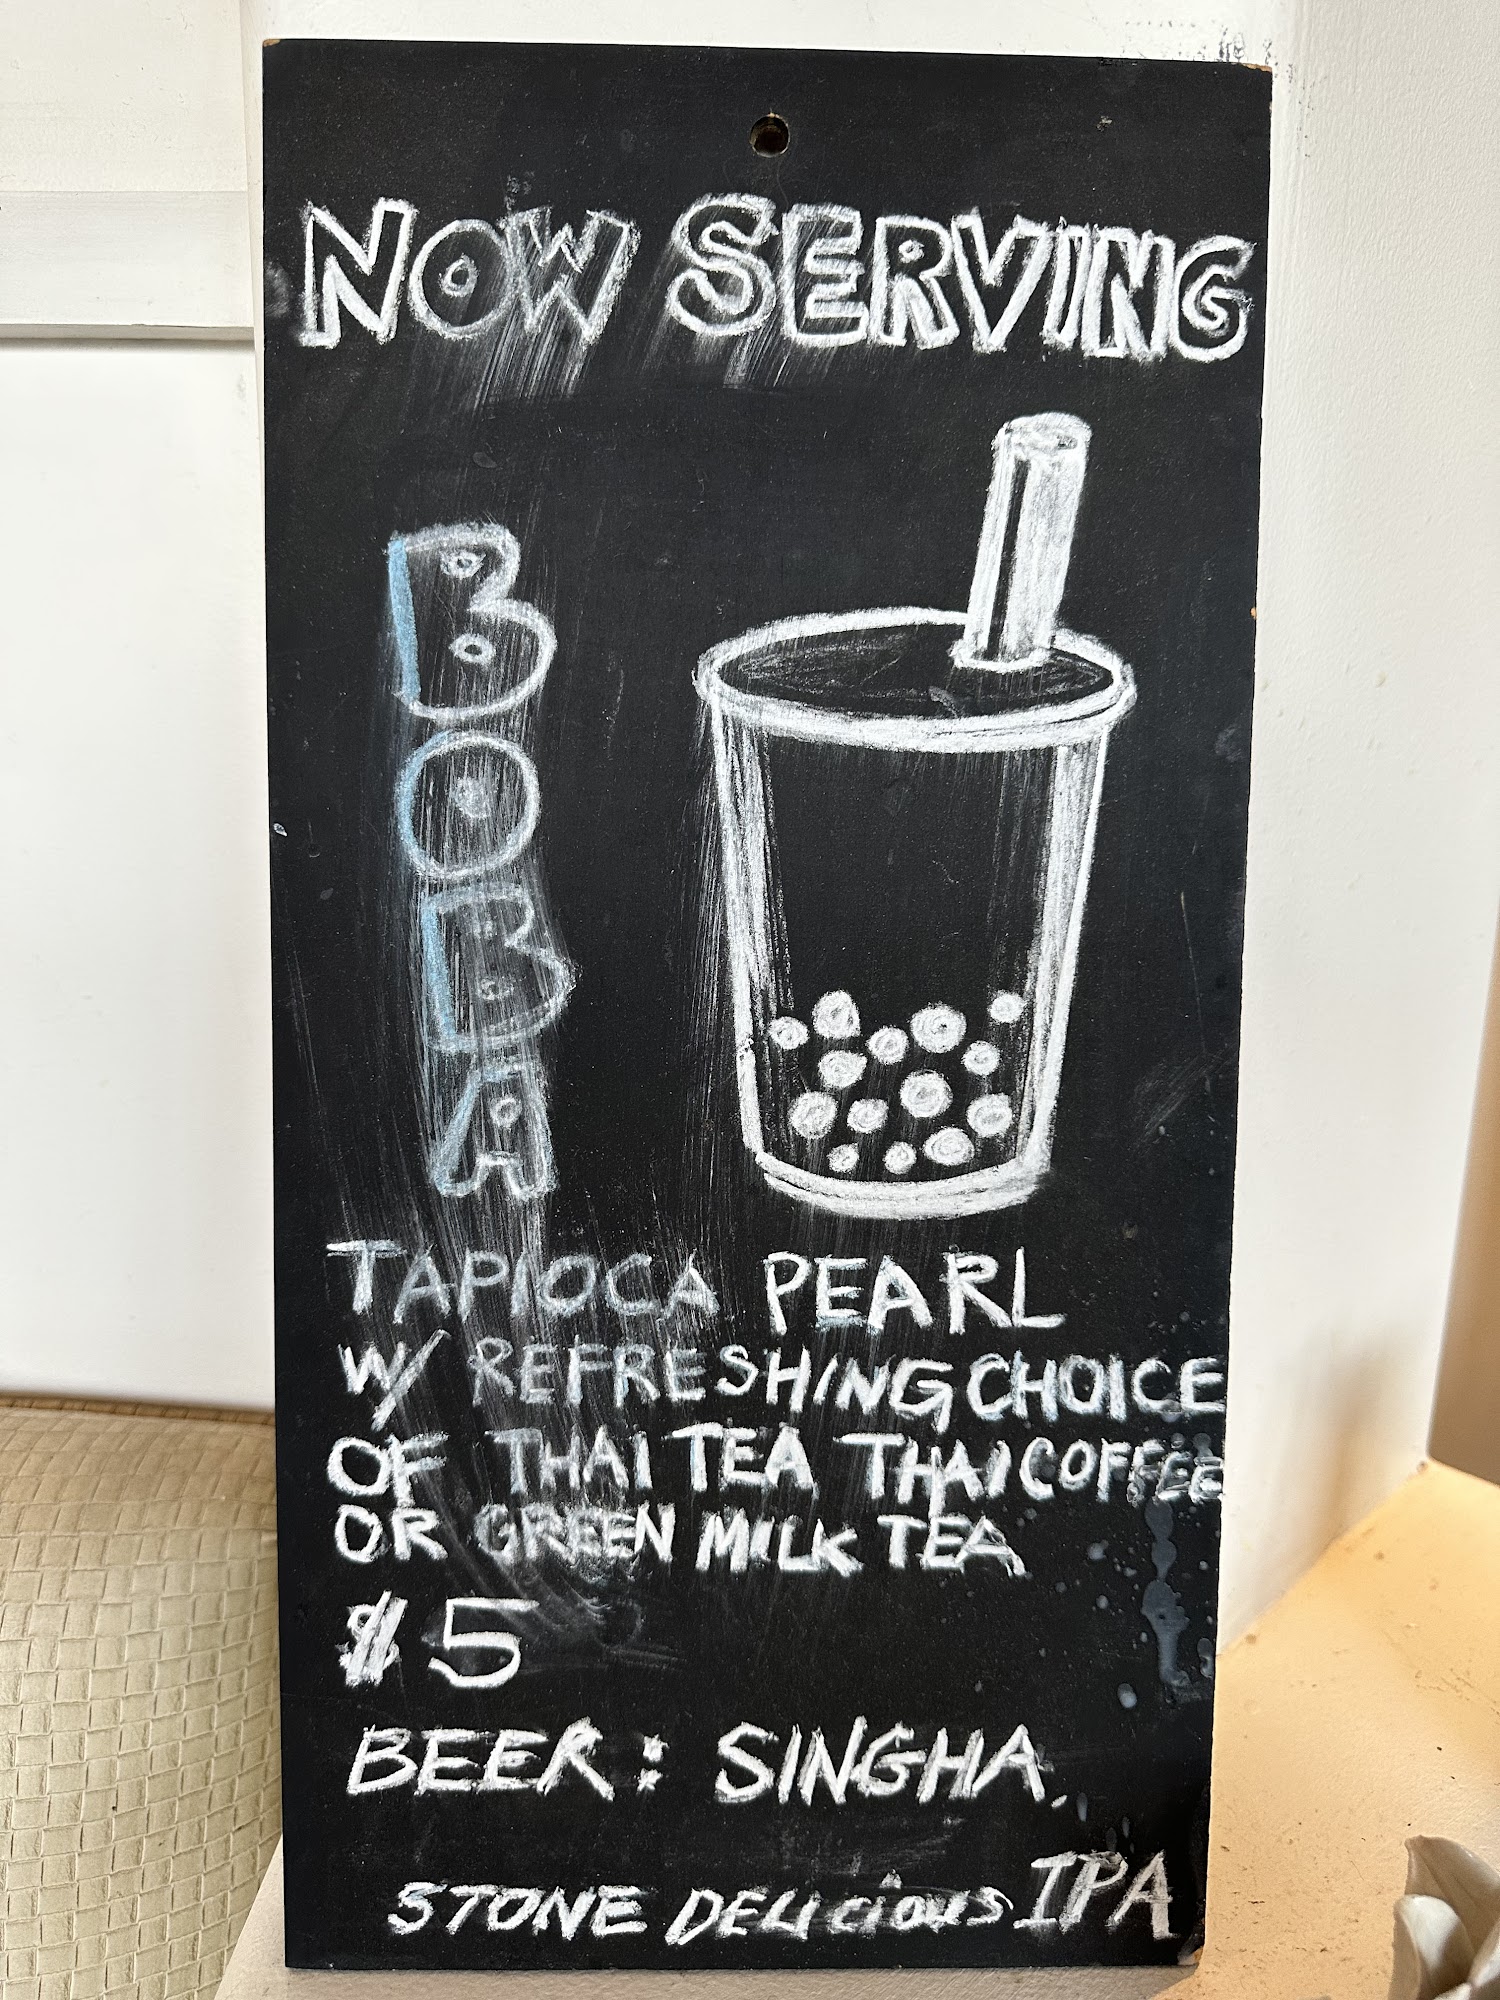 NOW SERVING
BOBA
TAPIOCA PEARL
W/ REFRESHING CHOICE
OF THAI TEA THAI COFFEE
OR GREEN MILK TEA
$5
BEER: SINGHA,
STONE DELiciouS IPA